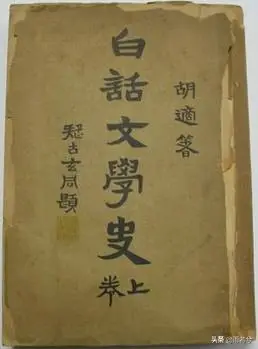 胡適箸
白話文學史
上卷
疑古玄同題
头条